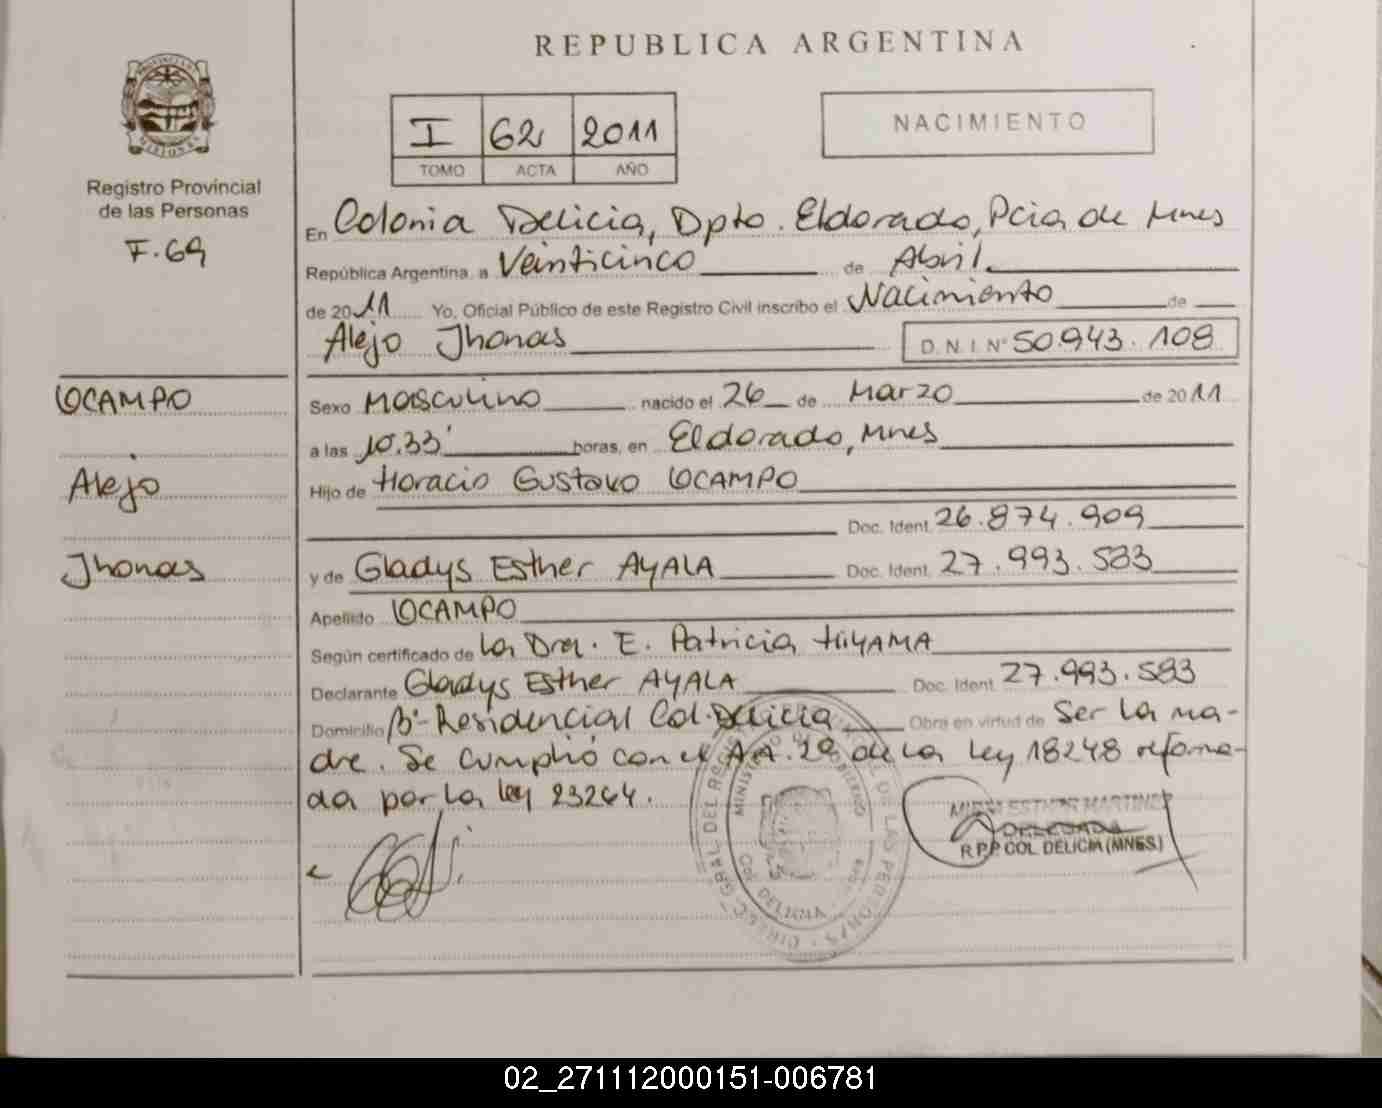 REPUBLICA ARGENTINA
PROVINCIA
MISIONES
Registro Provincial
de las Personas
F. 69
I 62 2011
TOMO ACTA AÑO
NACIMIENTO
En Colonia Delicia, Dpto. Eldorado, Pcia de Mnes
República Argentina, a Veinticinco de Abril
de 2011 Yo, Oficial Público de este Registro Civil inscribo el Nacimiento de
Alejo Jhonas D. N. I. N° 50.943.108
OCAMPO
Alejo
Jhonas
Sexo Masculino nacido el 26 de Marzo de 2011
a las 10.33' horas, en Eldorado, Mnes
Hijo de Horacio Gustavo OCAMPO
Doc. Ident. 26.874.909
y de Gladys Esther AYALA Doc. Ident. 27.993.583
Apellido OCAMPO
Según certificado de La Dra. E. Patricia HIYAMA
Declarante Gladys Esther AYALA Doc. Ident. 27.993.583
Domicilio B°- Residencial Col. Delicia Obra en virtud de Ser La ma-
dre. Se Cumplió con el AA. 2º de La Ley 18248 reforma-
da por La Ley 23264.
MIRNA ESTHER MARTINEZ
DELEGADA
R.P.P COL. DELICIA (MNES)
MINISTERIO DE GOBIERNO
DELICIA
02_271112000151-006781